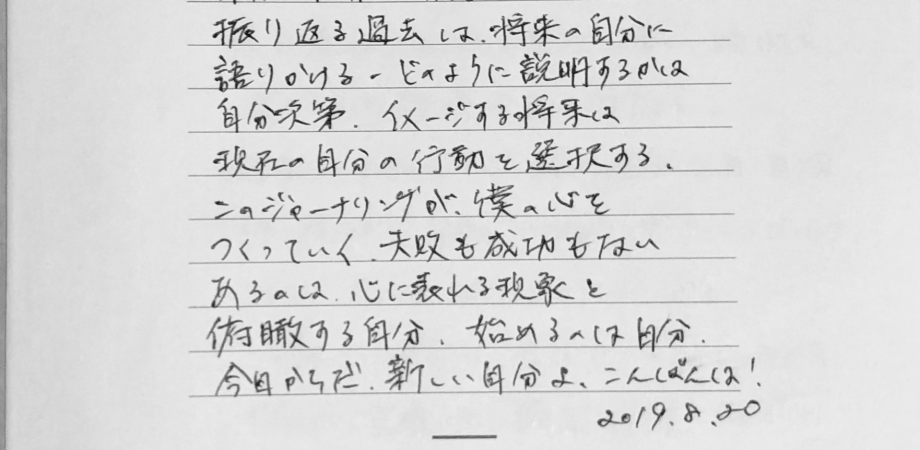 振り返る過去は、将来の自分に
語りかける。どのように説明するかは
自分次第。イメージする将来は
現在の自分の行動を選択する。
このジャーナリングが、僕の心を
つくっていく。失敗も成功もない
あるのは、心に表れる現象と
俯瞰する自分。始めるのは自分。
今日からだ。新しい自分よ、こんばんは!
2019.8.20